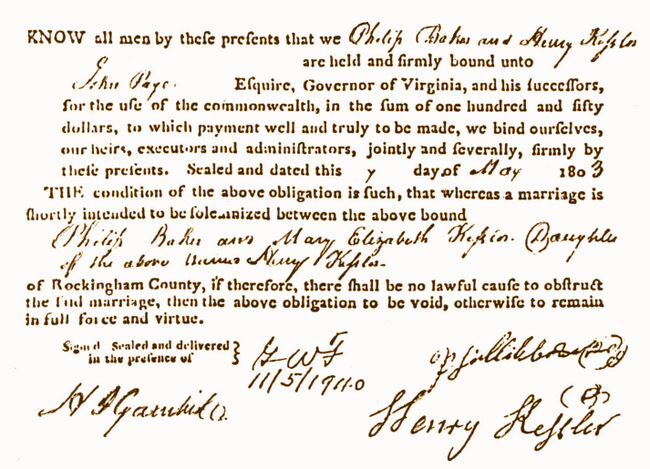 KNOW all men by theſe preſents that we Philip Baker and Henry Keſsler
are held and firmly bound unto
John Page Eſquire, Governor of Virginia, and his ſucceſſors,
for the uſe of the commonwealth, in the ſum of one hundred and fifty
dollars, to which payment well and truly to be made, we bind ourſelves,
our heirs, executors and adminiſtrators, jointly and ſeverally, firmly by
theſe preſents. Sealed and dated this 7 day of May 1803
THE condition of the above obligation is ſuch, that whereas a marriage is
ſhortly intended to be ſolemnized between the above bound
Philip Baker and Mary Elizabeth Keſslor Daughter
of the above Henry Keſsler
of Rockingham County, if therefore, there ſhall be no lawful cauſe to obſtruct
the ſaid marriage, then the above obligation to be void, otherwiſe to remain
in full force and virtue.
Signed Sealed and delivered
in the preſence of }
F W F
11/5/1940
Henry Keſsler